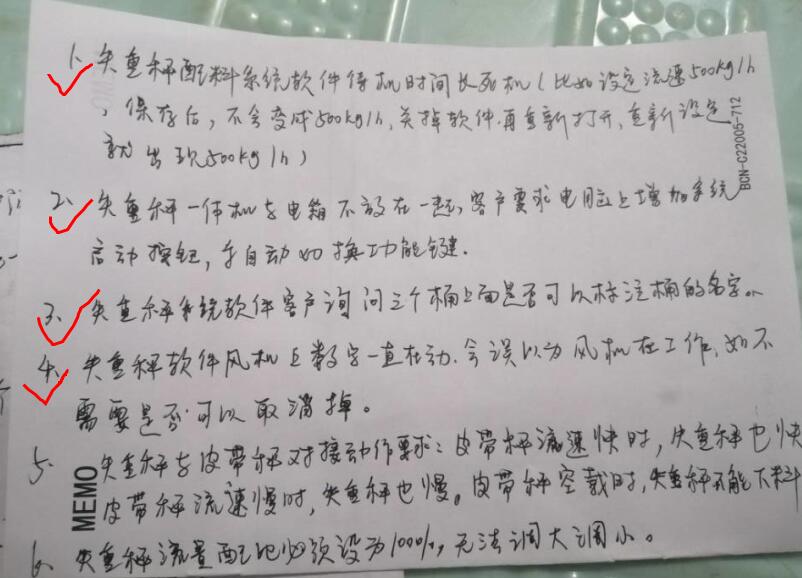 1、失重秤配料系统软件待机时间长死机(比如设定流速500kg/h
,保存后,不会变成500kg/h,关掉软件再重新打开,重新设定
就出现500kg/h)
2、失重秤一体机与电箱不放在一起,客户要求电脑上增加系统
启动按钮,手自动切换功能键.
3、失重秤系统软件客户询问三个桶上面是否可以标注桶的名字。
4、失重秤软件风机上数字一直在动.会误以为风机在工作,如不
需要是否可以取消掉。
5、失重秤与皮带秤对接动作要求:皮带秤流速快时,失重秤也快
皮带秤流速慢时,失重秤也慢。皮带秤空载时,失重秤不能下料
6、失重秤流量配比必须设为100%,无法调大调小。
MEMO
BGN-C22005-712